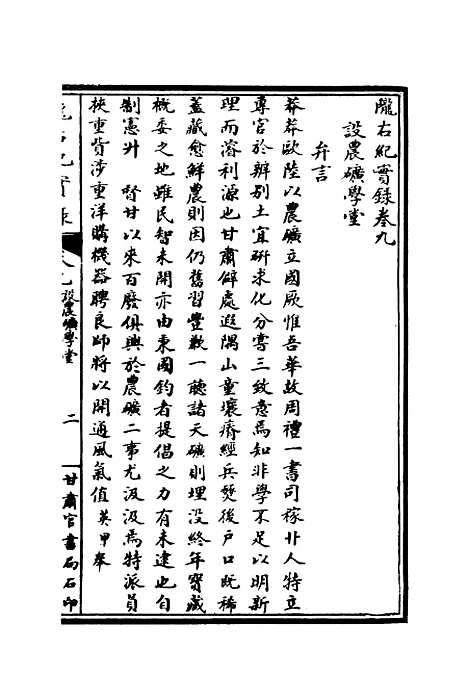 隴右紀實錄卷九
設農礦學堂
弁言
莽莽歐陸以農礦立國厥惟吾華故周禮一書司稼卝人特立
專官於辨別土宜研求化分嘗三致意焉知非學不足以明新
理而濬利源也甘肅僻處遐隅山童壤瘠經兵燹後户口既稀
蓋藏愈鮮農則因仍舊習豐歉一聽諸天礦則埋没終年寶藏
概委之地雖民智未開亦由秉國鈞者提倡之力有未逮也自
制憲升 督甘以來百廢俱興於農礦二事尤汲汲焉特派員
挾重貲涉重洋購機器聘良師將以開通風氣值英甲奉
隴右紀實錄 卷九設農礦學堂 二 甘肅官書局石印